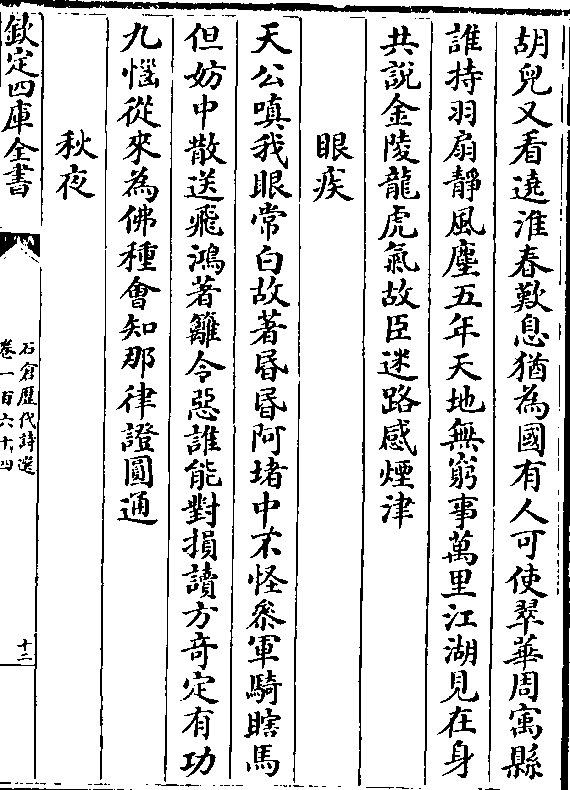 胡兒又看遶淮春歎息猶為國有人可使翠華周寓縣
誰持羽扇靜風塵五年天地無窮事萬里江湖見在身
共說金陵龍虎氣故臣迷路感煙津
眼疾
天公嗔我眼常白故著昬昬阿堵中不怪叅軍騎瞎馬
但妨中散送飛鴻著籬令惡誰能對損讀方竒定有功
九惱從來為佛種會知那律證圓通
秋夜
欽定四庫全書
石倉歷代詩選
卷一百六十四
十二